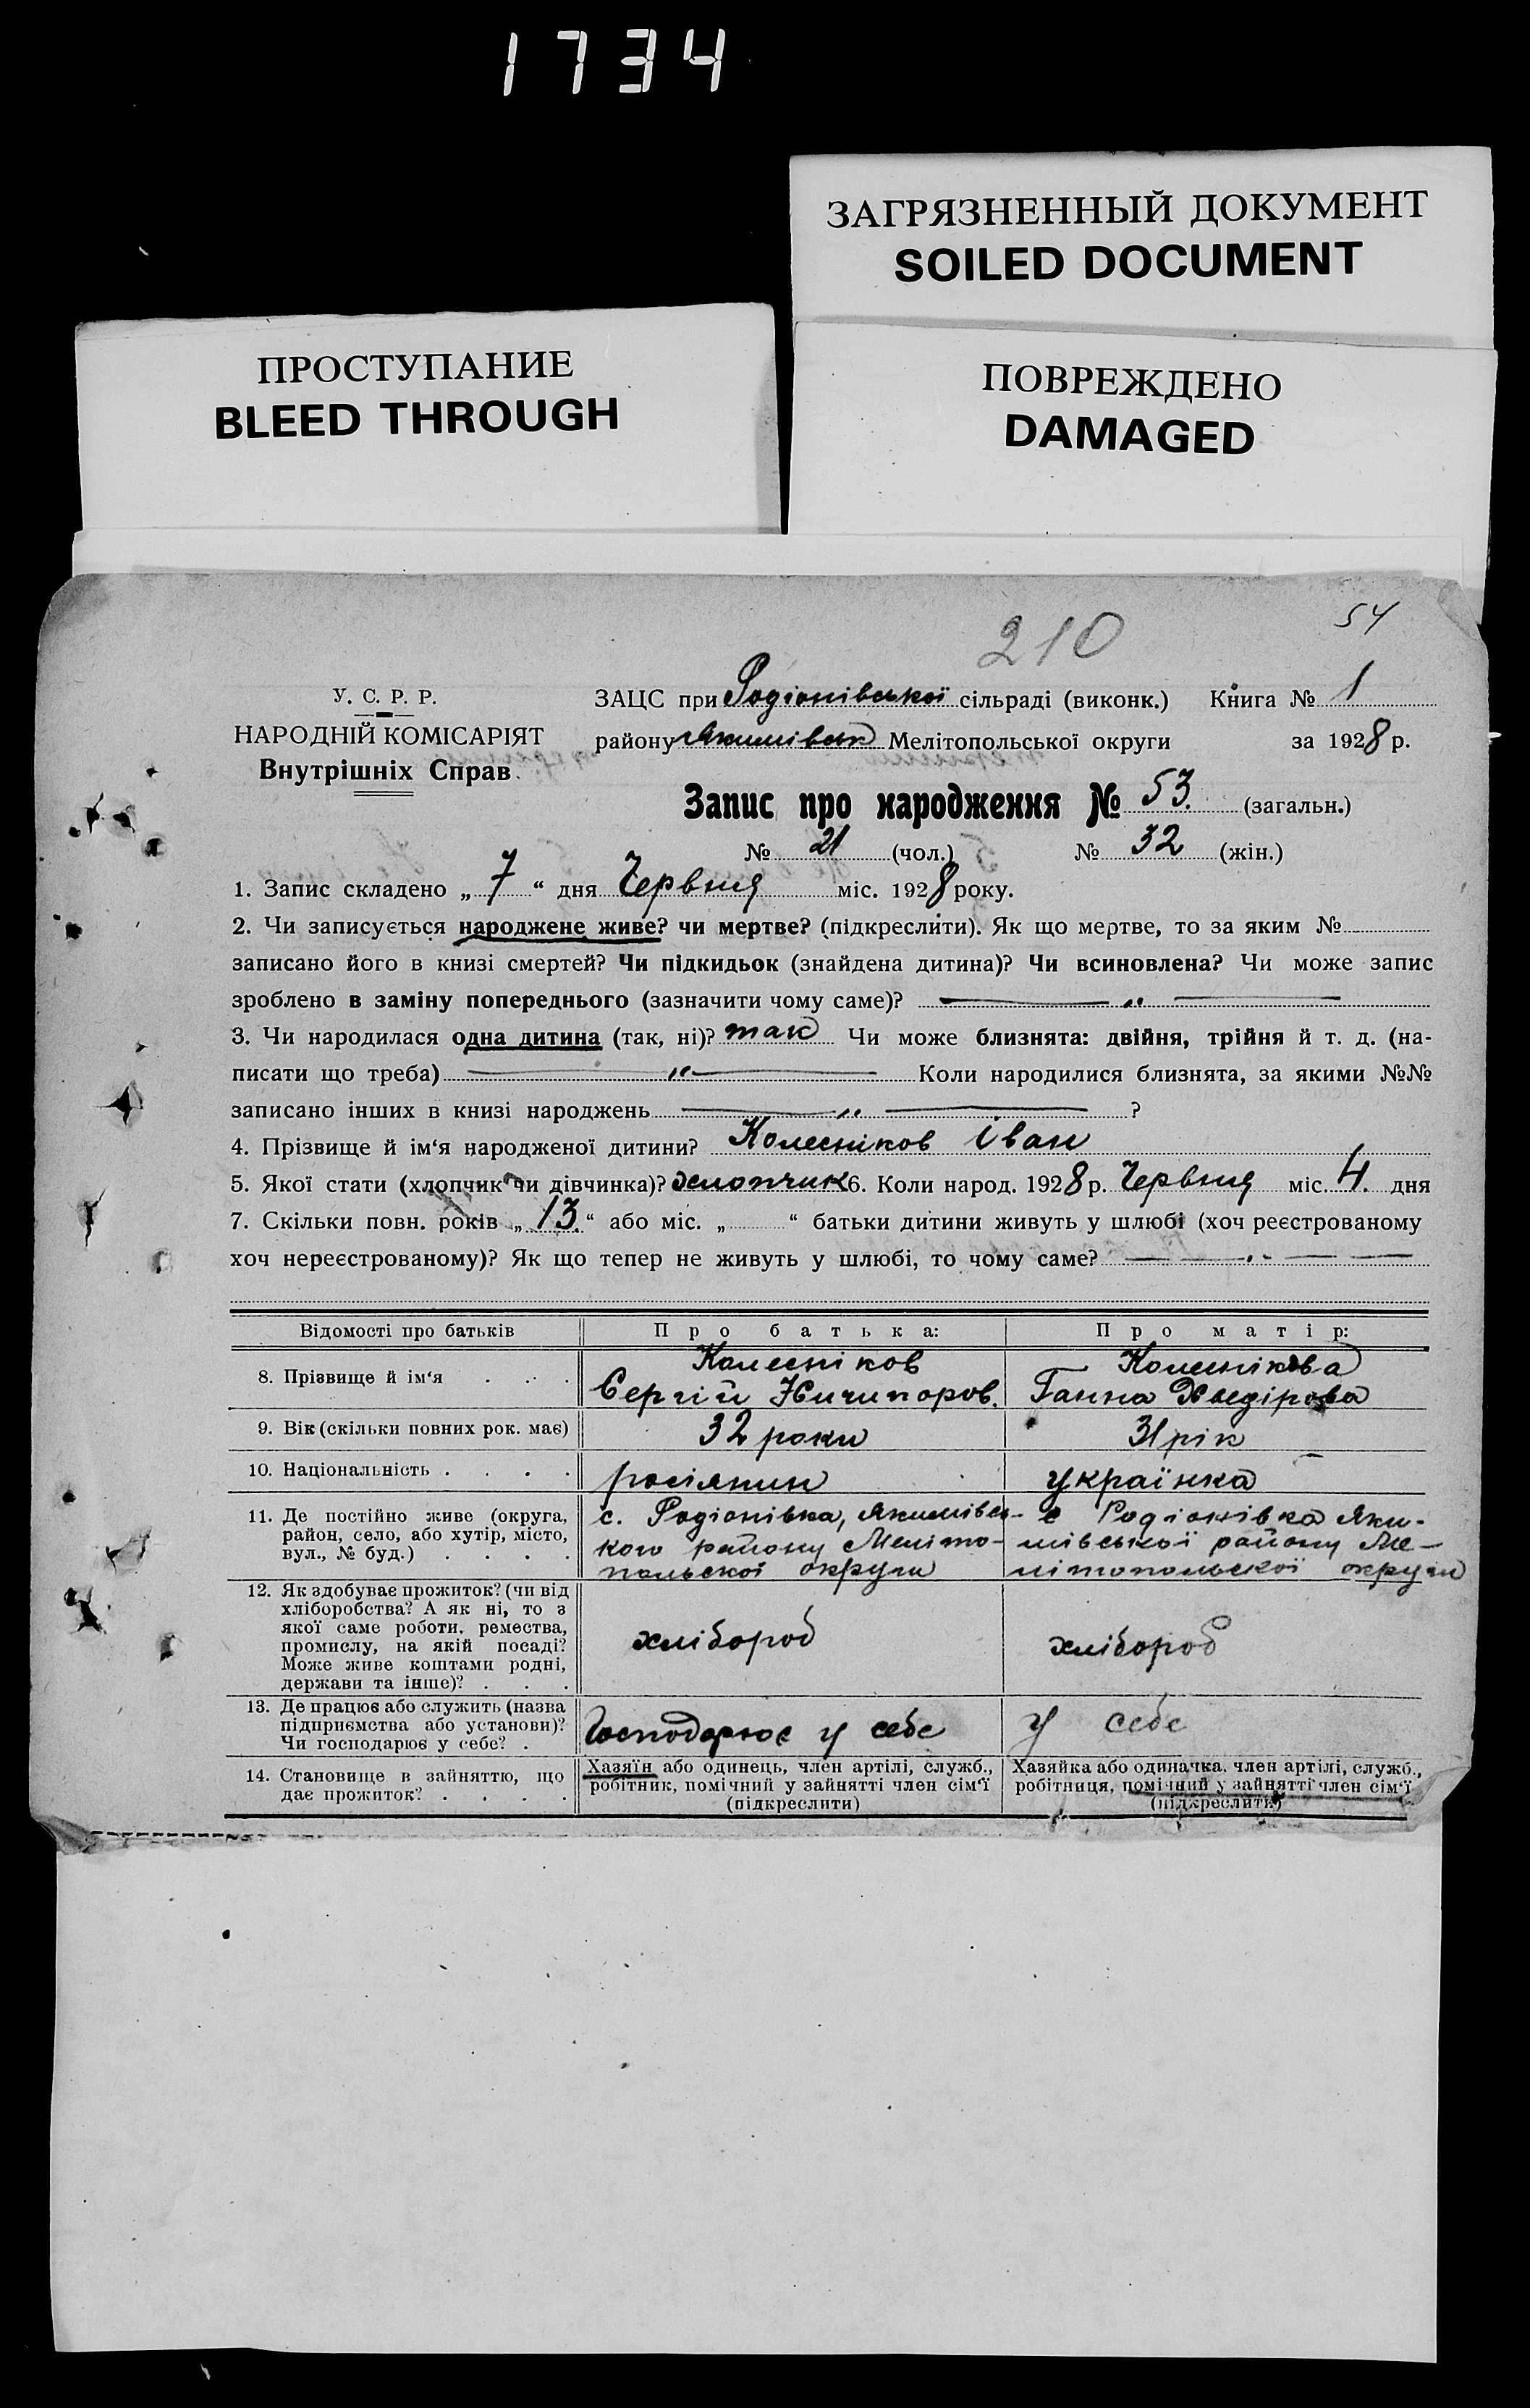 1734
ЗАГРЯЗНЕННЫЙ ДОКУМЕНТ
SOILED DOCUMENT
ПРОСТУПАНИЕ
BLEED THROUGH
ПОВРЕЖДЕНО
DAMAGED
210
54
У. С. Р. Р.
НАРОДНІЙ КОМІСАРІЯТ
Внутрішніх Справ.
ЗАЦС при Родіонівської сільраді (виконк.) Книга № 1
району Якимівськ Мелітопольської округи за 1928 р.
Запис про народження № 53. (загальн.)
№ 21 (чол.) № 32 (жін.)
1. Запис складено „ 7 “ дня Червня міс. 1928 року.
2. Чи записується народжене живе? чи мертве? (підкреслити). Як що мертве, то за яким №
записано його в книзі смертей? Чи підкидьок (знайдена дитина)? Чи всиновлена? Чи може запис
зроблено в заміну попереднього (зазначити чому саме)? — „ —
3. Чи народилася одна дитина (так, ні)? так Чи може близнята: двійня, трійня й т. д. (на-
писати що треба) — „ — Коли народилися близнята, за якими №№
записано інших в книзі народжень — „ — ?
4. Прізвище й ім‘я народженої дитини? Колесніков Іван
5. Якої стати (хлопчик чи дівчинка)? хлопчик 6. Коли народ. 1928 р. Червня міс. 4. дня
7. Скільки повн. років „ 13. “ або міс. „ “ батьки дитини живуть у шлюбі (хоч реєстрованому
хоч нереєстрованому)? Як що тепер не живуть у шлюбі, то чому саме? — „ — —
Відомості про батьків Про батька: Про матір:
8. Прізвище й ім‘я . . . .
Колесніков
Сергій Ничипоров.
Колеснікова
Ганна Хведірова
9. Вік (скільки повних рок. має) 32 роки 31 рік
10. Національність . . . . росіянин українка
11. Де постійно живе (округа,
район, село, або хутір, місто,
вул., № буд.) . . . .
с. Родіонівка, Якимівсь-
кого району Меліто-
польської округи
с Родіонівка Яки-
мівської району Ме-
літопольської округи
12. Як здобуває прожиток? (чи від
хліборобства? А як ні, то з
якої саме роботи, ремества,
промислу, на якій посаді?
Може живе коштами родні,
держави та інше)? . . .
хлібороб
хлібороб
13. Де працює або служить (назва
підприємства або установи)?
Чи господарює у себе? .
Господарює у себе
у себе
14. Становище в зайняттю, що
дає прожиток? . . . .
Хазяїн або одинець, член артілі, служб.,
робітник, помічний у зайнятті член сім‘ї
(підкреслити)
Хазяйка або одиначка, член артілі, служб.,
робітниця, помічний у зайнятті член сім‘ї
(підкреслити)